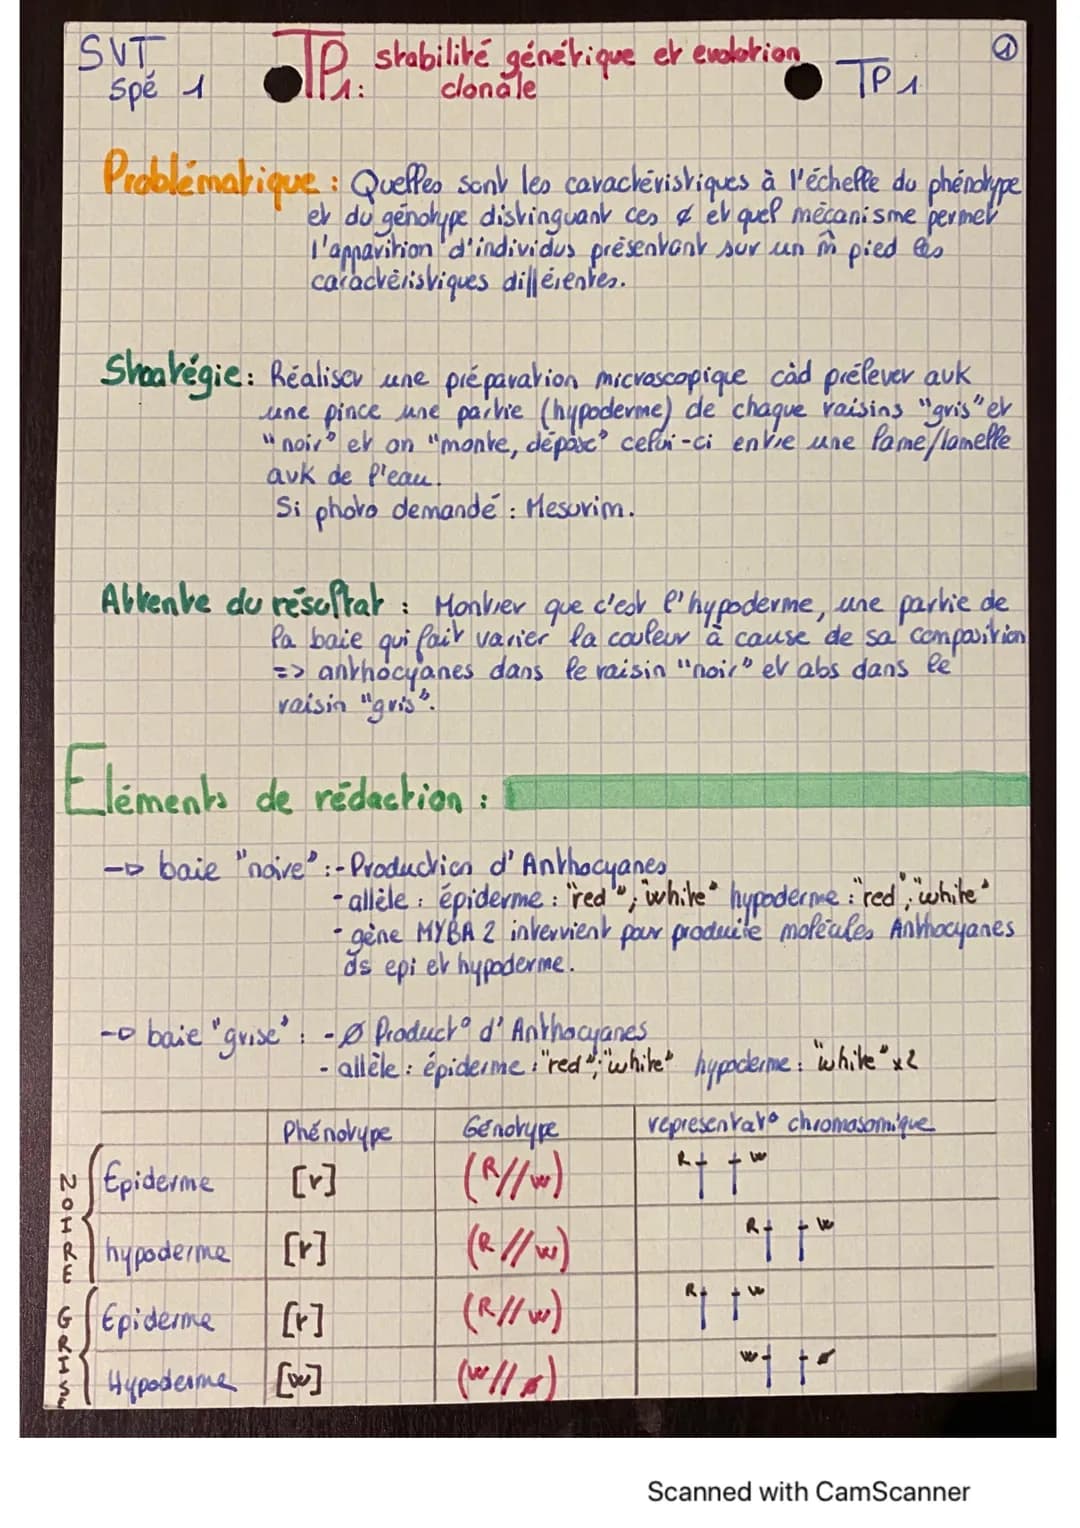 SVT
Spé 1
TP1: stabilité génétique et evolution
clonale
TP1
1
Problématique : Quelles sont les caractéristiques à l'échelle du phénotype
et du génotype distinguant ces ¢ et quel mécanisme permet
l'apparition d'individus présentant sur un m̂ pied les
caractéristiques différentes.
Straatégie : Réaliser une préparation microscopique càd prélever avk
une pince une partie (hypoderme) de chaque raisins "gris" et
"noir" et on "monte, dépose" celui-ci entre une lame/lamelle
avk de l'eau.
Si photo demandé : Mesurim.
Attente du résultat : Montrer que c'est l'hypoderme, une partie de
la baie qui fait varier la couleur à cause de sa composition
=> anthocyanes dans le raisin "noir" et abs dans le
raisin "gris".
Eléments de rédaction :
→ baie "noire" : - Production d'Anthocyanes
- allèle : épiderme : "red" ; "white" hypoderme : "red" ; "white"
- gène MYBA 2 intervient pour produire molécules Anthocyanes
ds epi et hypoderme.
→ baie "grise" : - Ø Product° d'Anthocyanes
- allèle : épiderme : "red" ; "white" hypoderme : "white" x2
Phénotype Génotype représentat° chromosomique
NOIRE
Epiderme [r] (R//w) R w
hypoderme [r] (R//w) R w
GRISE
Epiderme [r] (R//w) R w
Hypoderme [w] (w//ø) w ø
Scanned with CamScanner